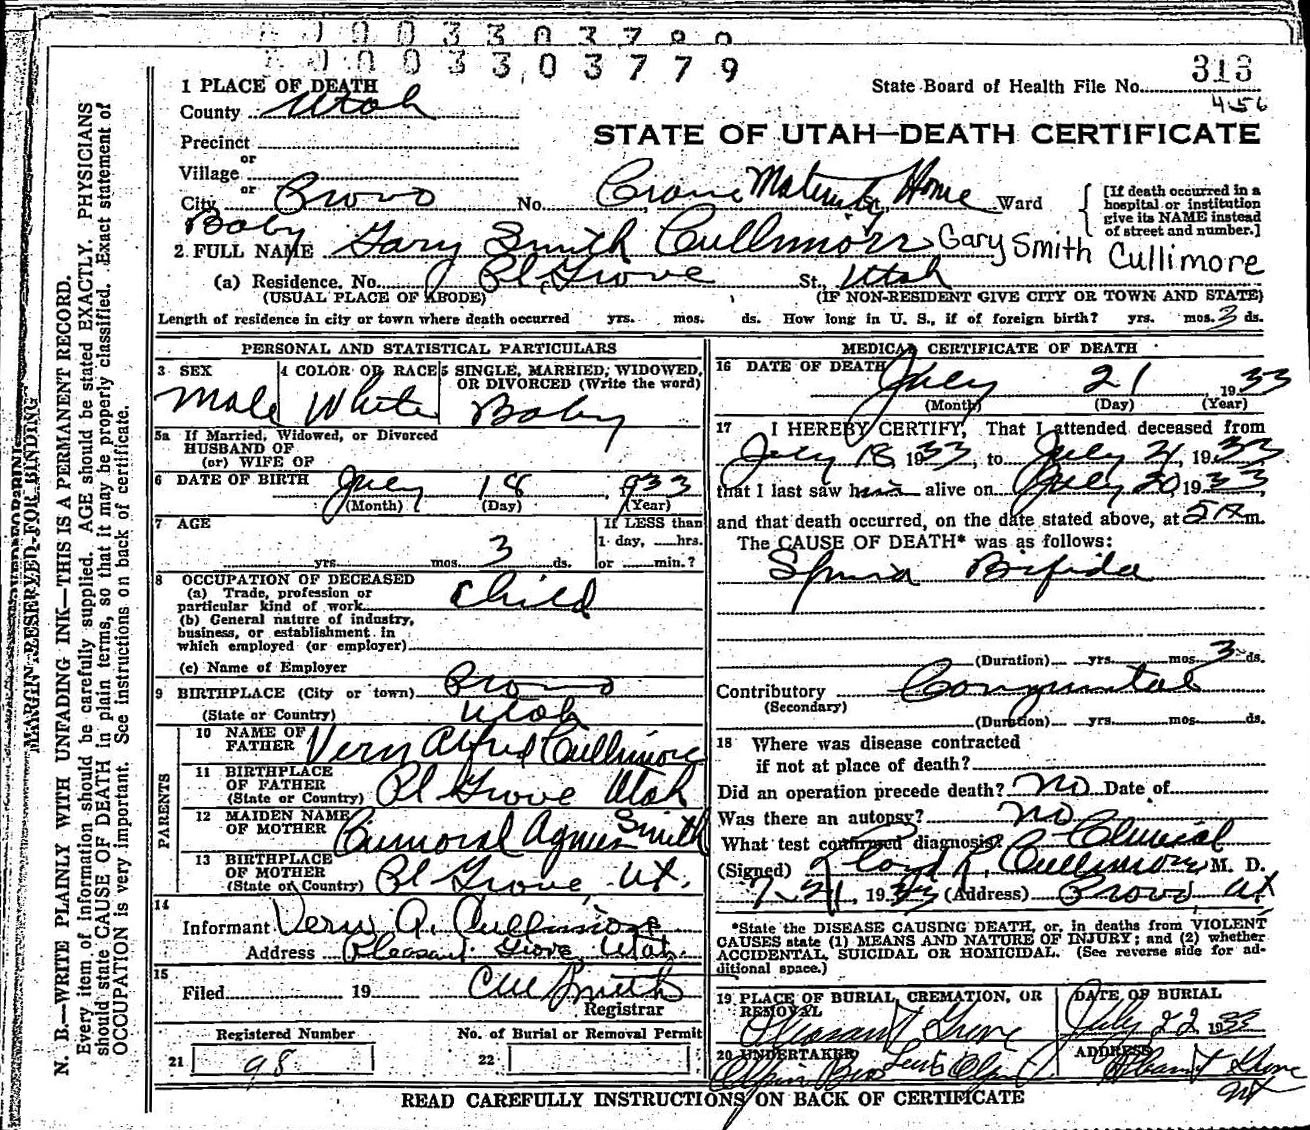 0 0 0 3 3 0 3 7 8 9
0 0 0 3 3 0 3 7 7 9
1 PLACE OF DEATH
State Board of Health File No. 313
456
County Utah
STATE OF UTAH—DEATH CERTIFICATE
Precinct
or
Village
or
City Provo No. Crane Maternity Home St., Ward
[If death occurred in a hospital or institution give its NAME instead of street and number.]
2 FULL NAME Baby Gary Smith Cullimore Gary Smith Cullimore
(a) Residence. No. Pl. Grove St., Utah
(USUAL PLACE OF ABODE) (IF NON-RESIDENT GIVE CITY OR TOWN AND STATE)
Length of residence in city or town where death occurred yrs. mos. ds. How long in U. S., if of foreign birth? yrs. mos. 3 ds.
PERSONAL AND STATISTICAL PARTICULARS
3 SEX Male
4 COLOR OR RACE White
5 SINGLE, MARRIED, WIDOWED, OR DIVORCED (Write the word) Baby
5a If Married, Widowed, or Divorced
HUSBAND OF
(or) WIFE OF
6 DATE OF BIRTH July 18, 1933
(Month) (Day) (Year)
7 AGE
If LESS than
1 day, ....hrs.
yrs. mos. 3 ds. or ......min.?
8 OCCUPATION OF DECEASED
(a) Trade, profession or
particular kind of work Child
(b) General nature of industry,
business, or establishment in
which employed (or employer)
(c) Name of Employer
9 BIRTHPLACE (City or town) Provo
(State or Country) Utah
PARENTS
10 NAME OF FATHER Vern Alfred Cullimore
11 BIRTHPLACE OF FATHER (State or Country) Pl Grove Utah
12 MAIDEN NAME OF MOTHER Cumoral Agnes Smith
13 BIRTHPLACE OF MOTHER (State or Country) Pl Grove, Ut.
14
Informant Vern A. Cullimore
Address Pleasant Grove, Utah.
15
Filed 19 Smith
Registrar
Registered Number
21 98
No. of Burial or Removal Permit
22
MEDICAL CERTIFICATE OF DEATH
16 DATE OF DEATH July 21 1933
(Month) (Day) (Year)
17 I HEREBY CERTIFY, That I attended deceased from
July 18, 1933, to July 21, 1933
that I last saw him alive on July 20 1933,
and that death occurred, on the date stated above, at 5 A m.
The CAUSE OF DEATH* was as follows:
Spina Bifida
(Duration) yrs. mos. 3 ds.
Contributory Congenital
(Secondary)
(Duration) yrs. mos. ds.
18 Where was disease contracted
if not at place of death?
Did an operation precede death? No Date of
Was there an autopsy? No
What test confirmed diagnosis? Clinical
(Signed) Lloyd L. Cullimore M. D.
7-21, 1933 (Address) Provo Ut
*State the DISEASE CAUSING DEATH, or, in deaths from VIOLENT
CAUSES state (1) MEANS AND NATURE OF INJURY; and (2) whether
ACCIDENTAL, SUICIDAL OR HOMICIDAL. (See reverse side for ad-
ditional space.)
19 PLACE OF BURIAL, CREMATION, OR REMOVAL Pleasant Grove
DATE OF BURIAL July 22 1933
20 UNDERTAKER Olpin Bro
ADDRESS Pleasant Grove Ut
READ CAREFULLY INSTRUCTIONS ON BACK OF CERTIFICATE
MARGIN RESERVED FOR BINDING
N. B.—WRITE PLAINLY WITH UNFADING INK—THIS IS A PERMANENT RECORD.
Every item of information should be carefully supplied. AGE should be stated EXACTLY. PHYSICIANS
should state CAUSE OF DEATH in plain terms, so that it may be properly classified. Exact statement of
OCCUPATION is very important. See instructions on back of certificate.